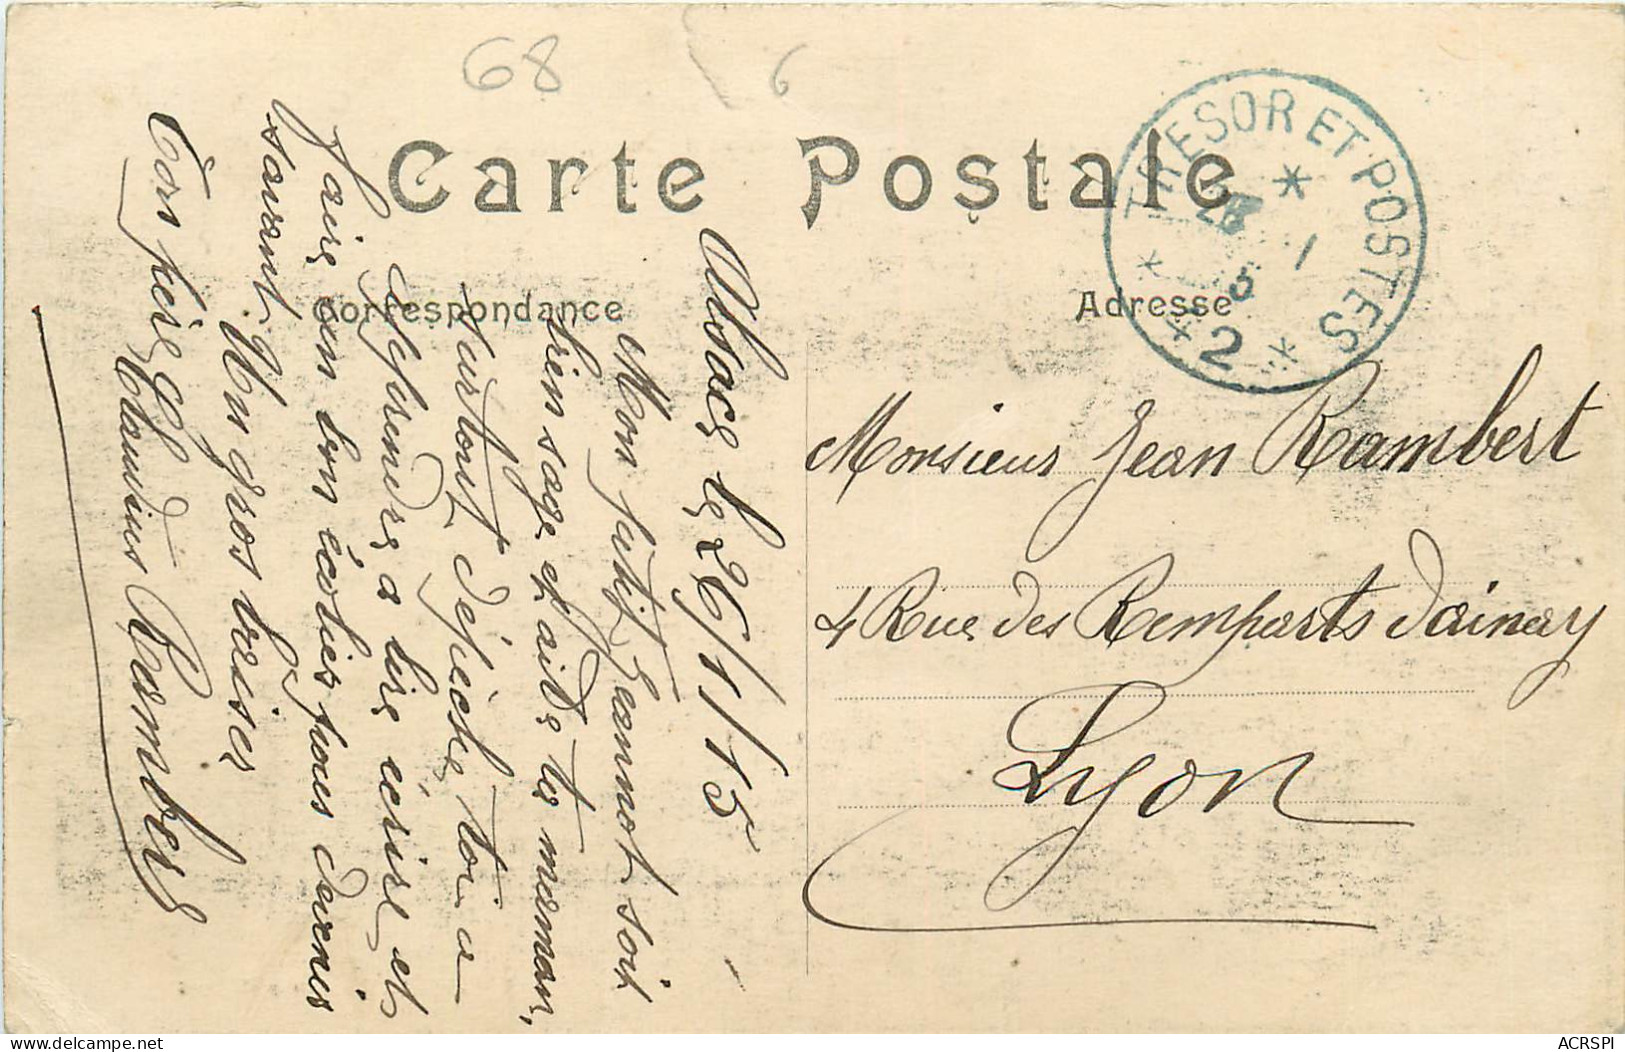 68
6
Carte Postale
TRESOR ET POSTES
1
5
* 2 *
Correspondance
Adresse
Alsace le 26/1/15
Mon petit Jeannot soit
bien sage et aide ta maman,
surtout dépèche toi a
apprendre a lire écrire et
faire un bon écolier puis devenir
savant
Un gros baiser
Ton père
Claudius Rambert
Monsieur Jean Rambert
4 Rue des Remparts d'ainay
Lyon
www.delcampe.net
ACRSPI